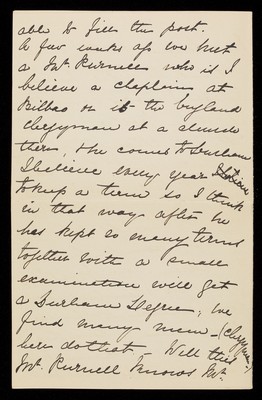 able to fill the post.
A few weeks ago we met
a Mr Purnell who is I
believe a chaplain at
Bilbao or is the England
clergyman at a church
there, & he comes to Durham
I believe every year
to keep a term so I think
in that way after he
has kept so many terms
together with a small
examination will get
a Durham Degree; we
find many men (clergymen)
here do that. Well this
Mr. Purnell knows Mr.